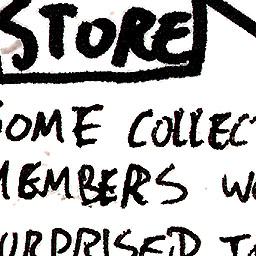 STORE
SOME COLLECT
MEMBERS W
SURPRISED T